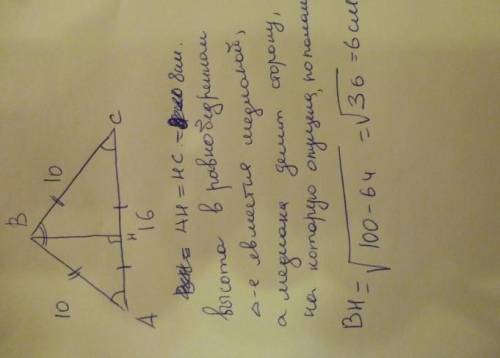 B
10
10
C
H
16
A
AH = HC = 8 см.
высота в равнобедренном
Δ-е является медианой,
а медиана делит сторону,
на которую опущена, пополам
BH = √100-64 = √36 = 6 см